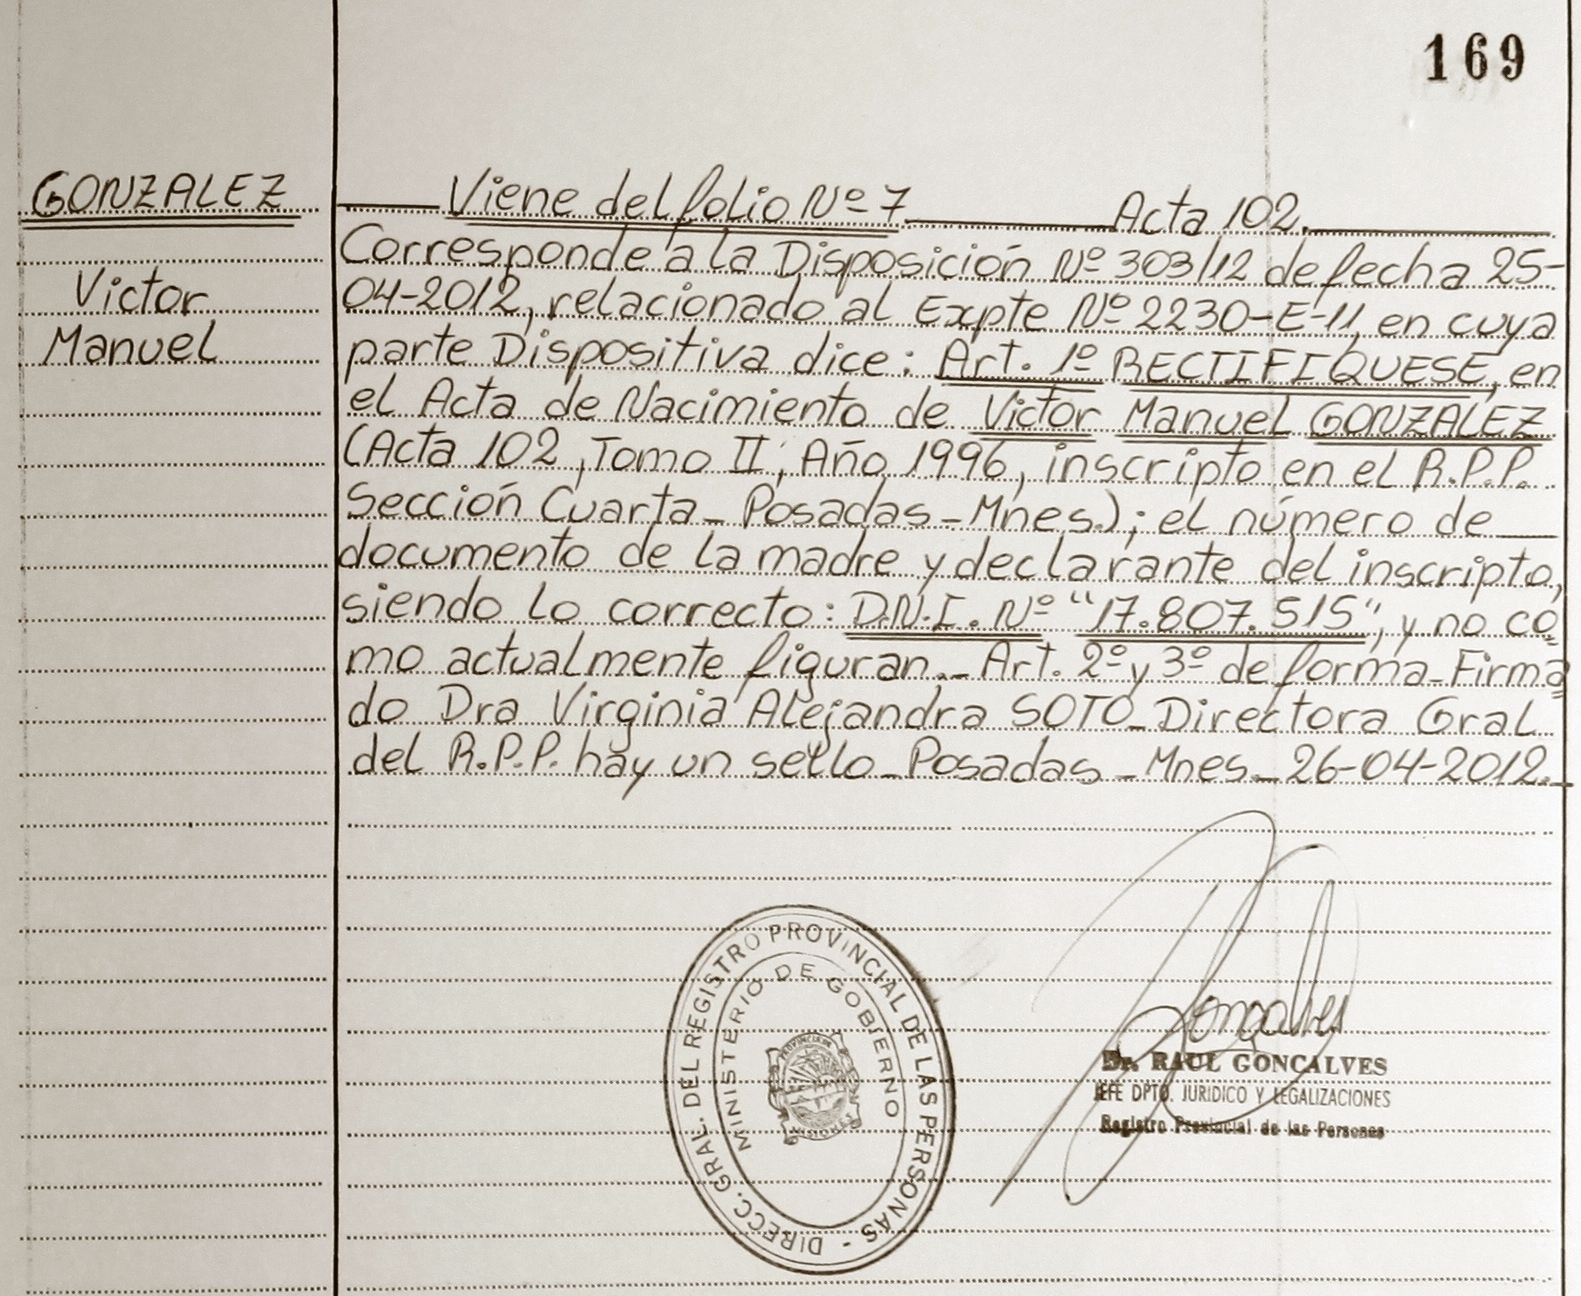 169
GONZALEZ
Victor
Manuel
Viene del folio Nº 7 Acta 102.
Corresponde a la Disposición Nº 303/12 de fecha 25-
04-2012, relacionado al Expte Nº 2230-E-11, en cuya
parte Dispositiva dice: Art. 1º RECTIFIQUESE, en
el Acta de Nacimiento de Victor Manuel GONZALEZ
(Acta 102, Tomo II, Año 1996, inscripto en el R.P.P.
Sección Cuarta_ Posadas - Mnes.); el número de
documento de la madre y declarante del inscripto,
siendo lo correcto: D.N.I. Nº "17.807.515", y no co
mo actualmente figuran._ Art. 2º y 3º de forma_Firma
do Dra Virginia Alejandra SOTO_Directora Gral
del R.P.P. hay un sello_Posadas_Mnes_ 26-04-2012._
DIRECC. GRAL. DEL REGISTRO PROVINCIAL DE LAS PERSONAS -
MINISTERIO DE GOBIERNO
PROVINCIA DE
MISIONES
Goncalves
Dr. RAUL GONCALVES
JEFE DPTO. JURIDICO Y LEGALIZACIONES
Registro Provincial de las Personas